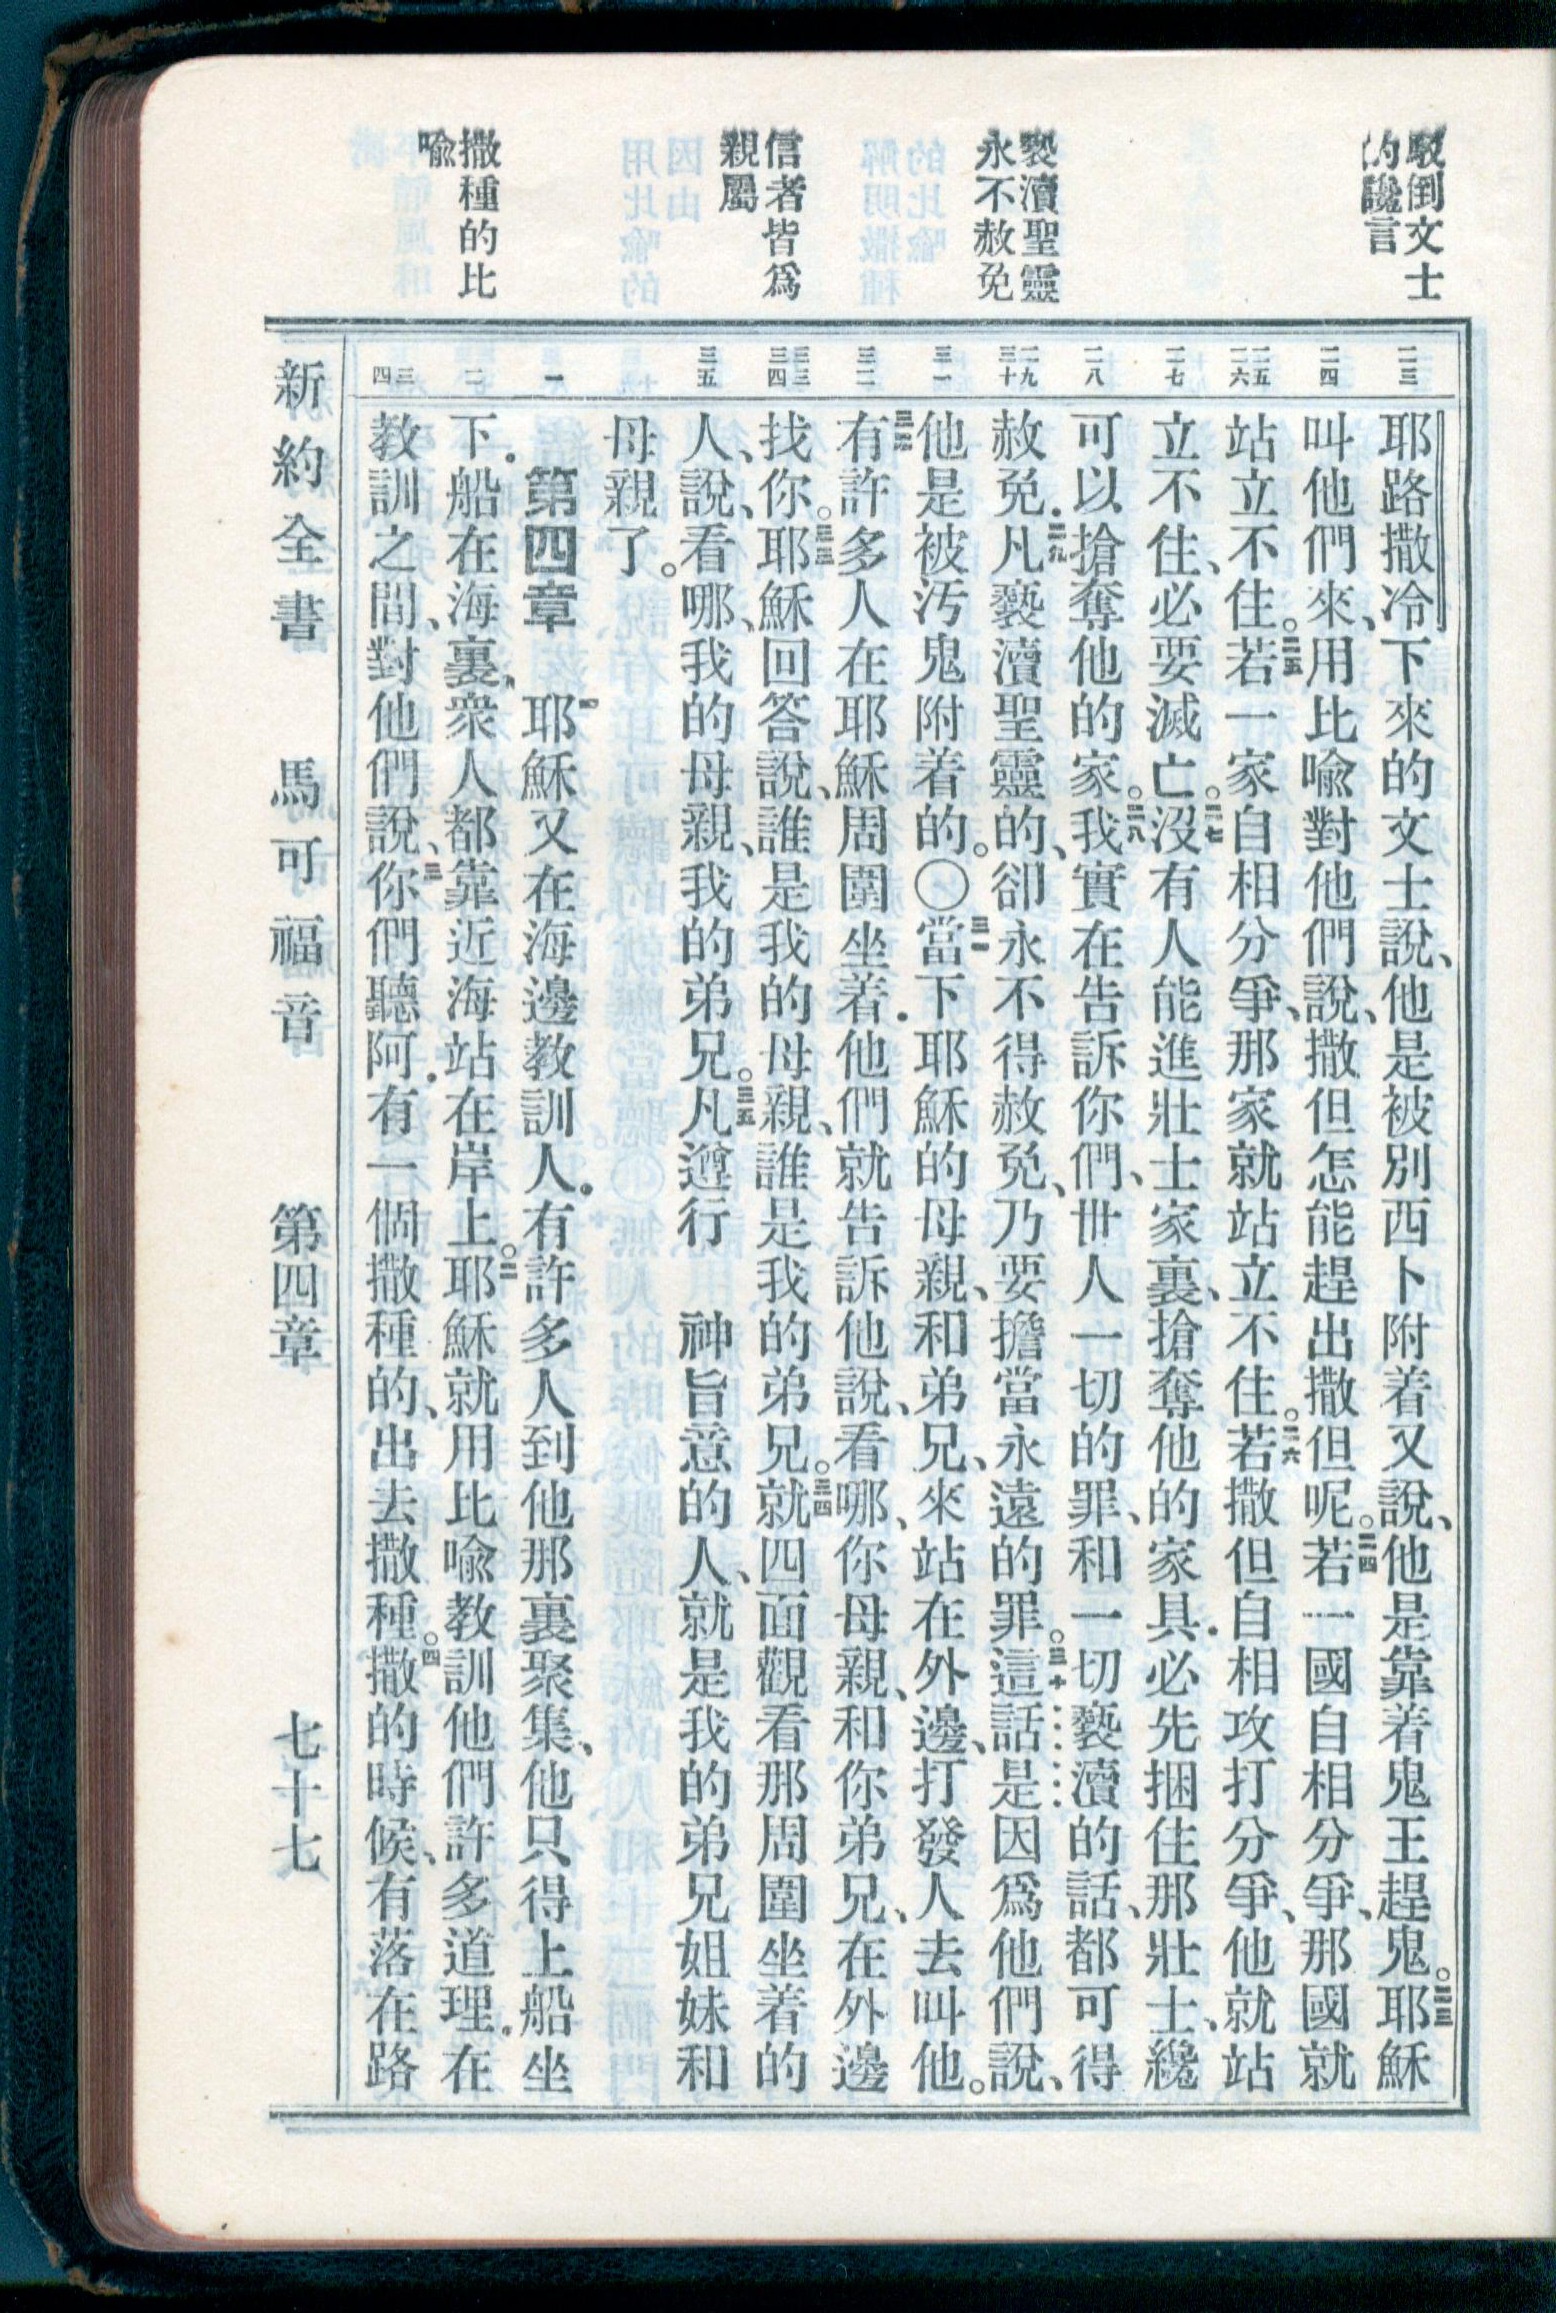 駁倒文士
的讒言
褻瀆聖靈
永不赦免
信者皆爲
親屬
撒種的比
喩
二三
二四
二五
二六
二七
二八
二九
三十
三一
三二
三三
三四
三五
一
二
三
四
耶路撒冷下來的文士說、他是被別西卜附着又說、他是靠着鬼王趕鬼。二三耶穌
叫他們來、用比喩對他們說、撒但怎能趕出撒但呢。二四若一國自相分爭、那國就
站立不住。二五若一家自相分爭、那家就站立不住。二六若撒但自相攻打分爭、他就站
立不住、必要滅亡。二七沒有人能進壯士家裏、搶奪他的家具．必先捆住那壯士、纔
可以搶奪他的家。二八我實在告訴你們、世人一切的罪、和一切褻瀆的話、都可得
赦免．二九凡褻瀆聖靈的、卻永不得赦免、乃要擔當永遠的罪。三十這話是因爲他們說、
他是被汚鬼附着的。〇三一當下耶穌的母親、和弟兄、來站在外邊、打發人去叫他。
三二有許多人在耶穌周圍坐着．他們就告訴他說、看哪、你母親、和你弟兄、在外邊
找你。三三耶穌回答說、誰是我的母親、誰是我的弟兄。三四就四面觀看那周圍坐着的
人、說、看哪、我的母親、我的弟兄。三五凡遵行　神旨意的人、就是我的弟兄姐妹和
母親了。
第四章　一耶穌又在海邊教訓人．有許多人到他那裏聚集、他只得上船坐
下．船在海裏、衆人都靠近海站在岸上。二耶穌就用比喩教訓他們許多道理．在
教訓之間、對他們說、三你們聽阿．有一個撒種的、出去撒種。四撒的時候、有落在路
新約全書　馬可福音　第四章　七十七